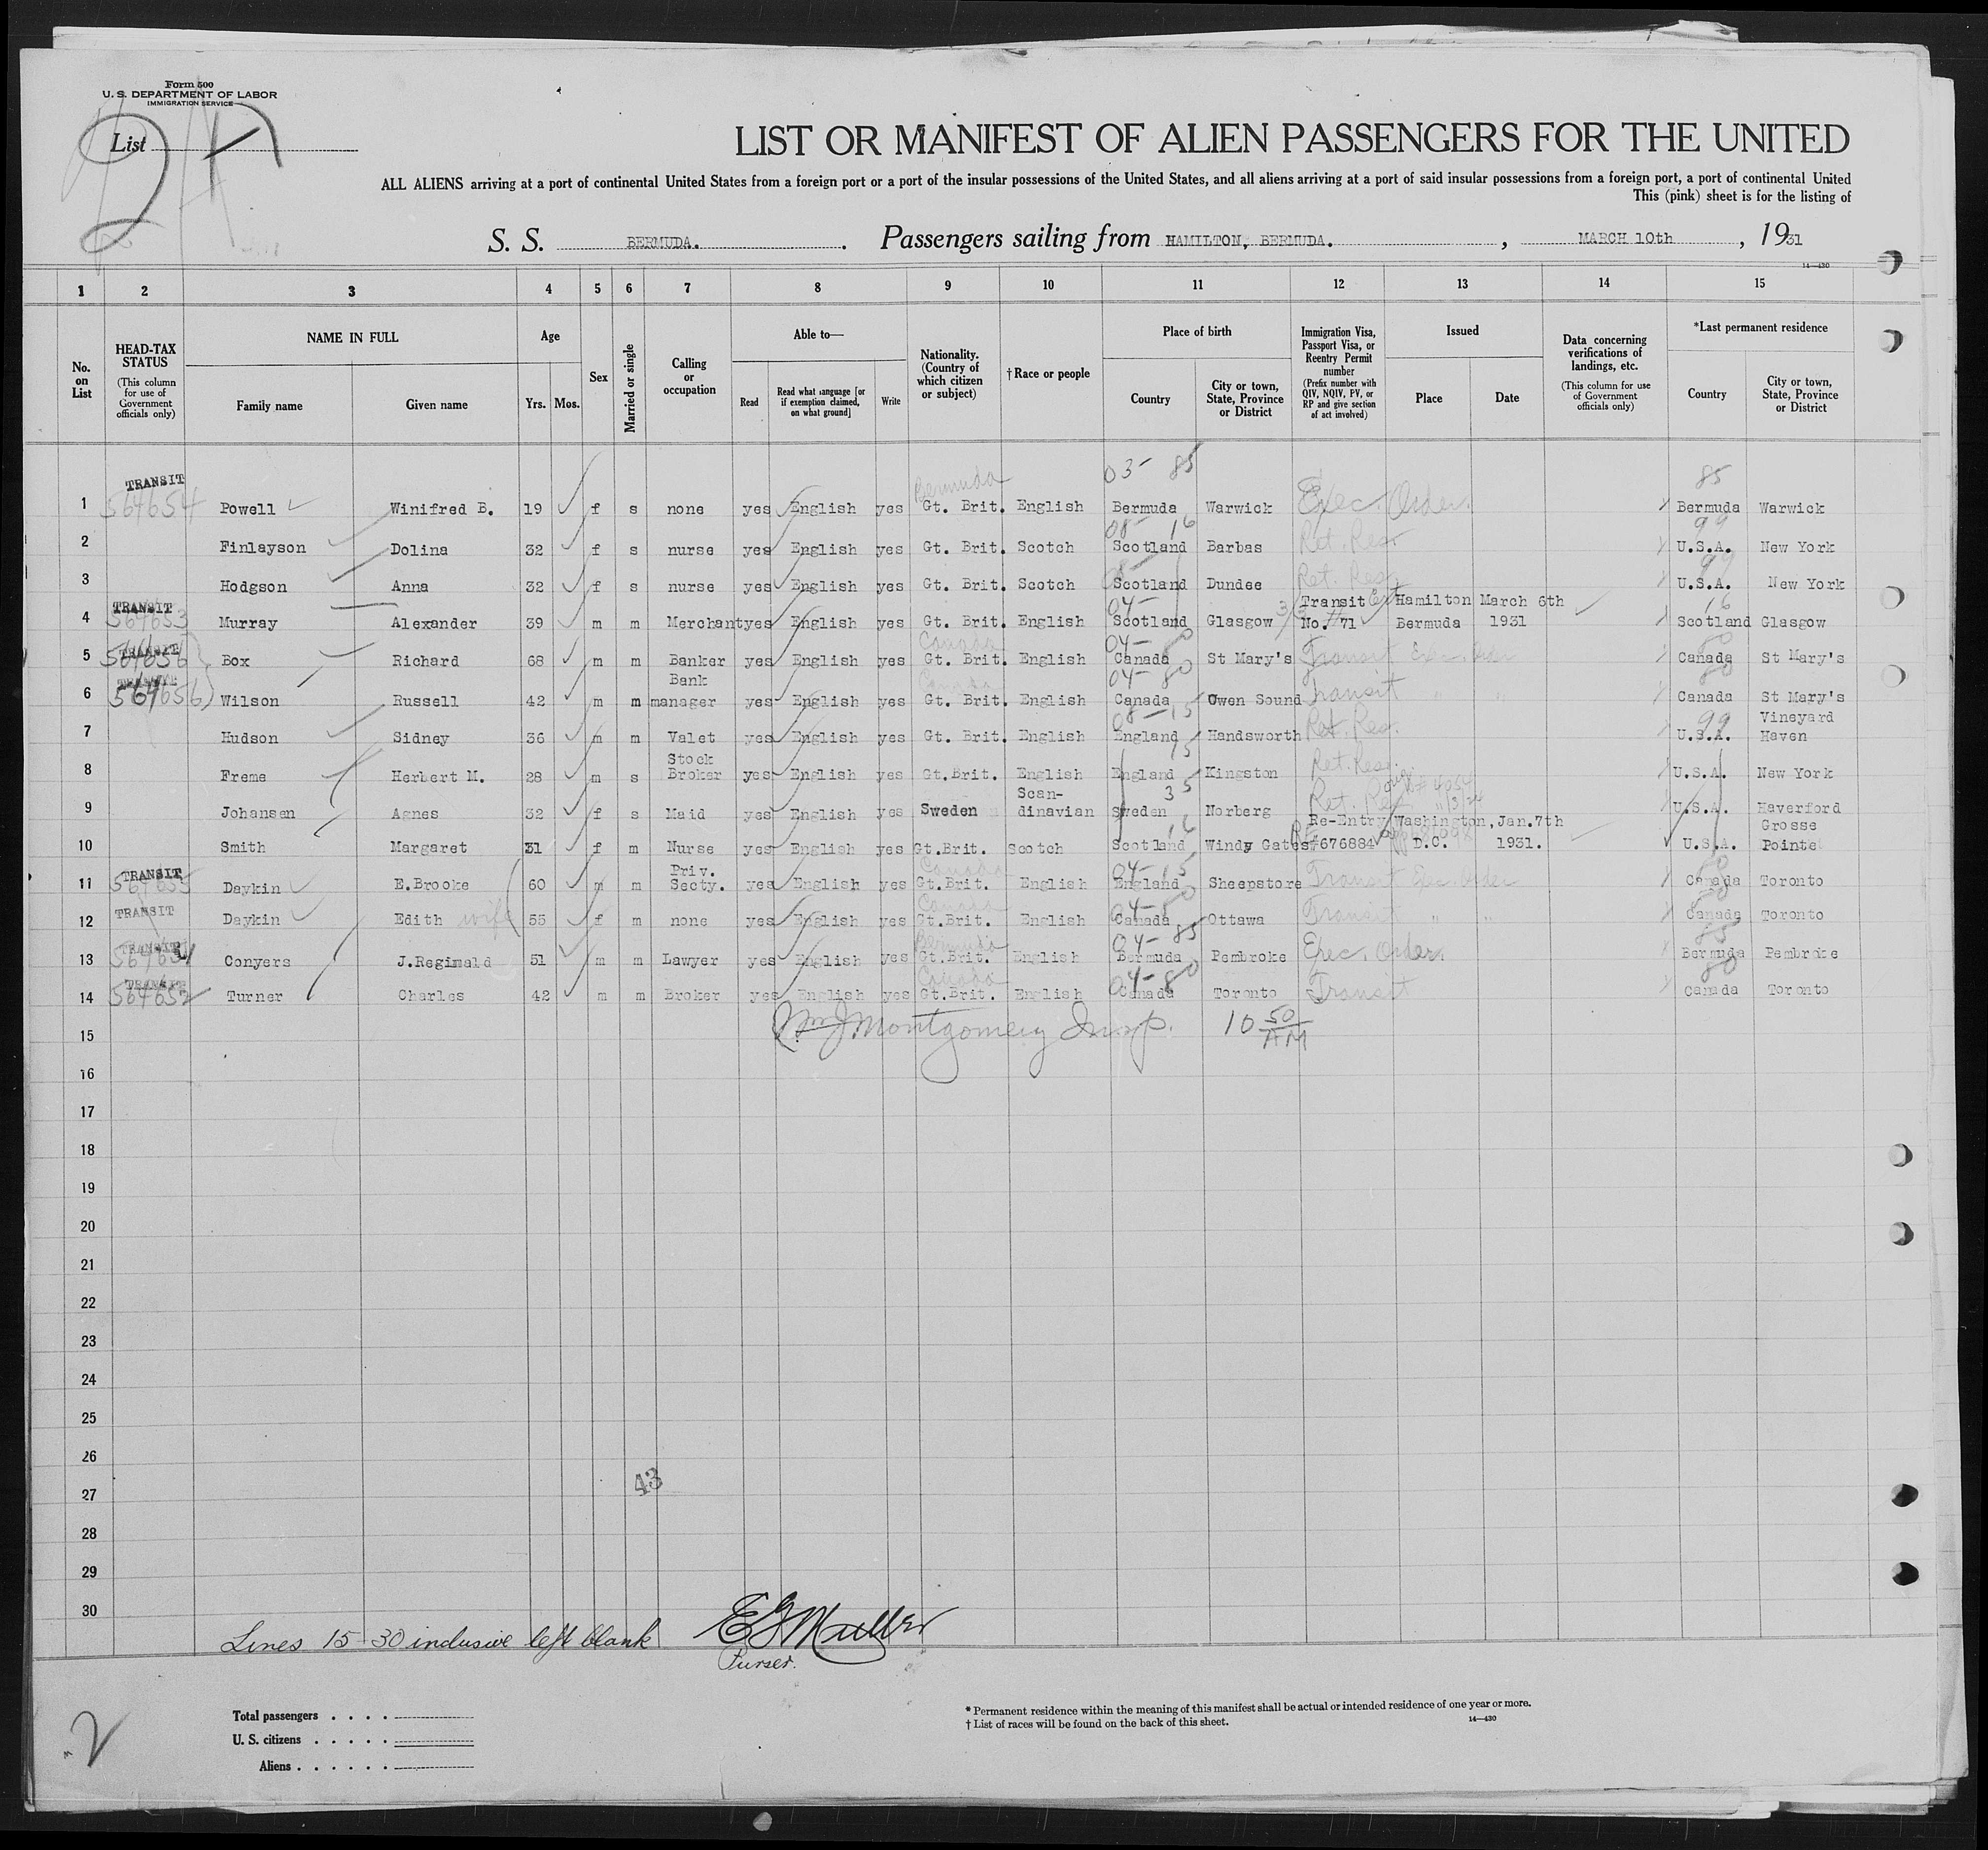 Form 500
U. S. DEPARTMENT OF LABOR
IMMIGRATION SERVICE
List
2
LIST OR MANIFEST OF ALIEN PASSENGERS FOR THE UNITED
ALL ALIENS arriving at a port of continental United States from a foreign port or a port of the insular possessions of the United States, and all aliens arriving at a port of said insular possessions from a foreign port, a port of continental United
This (pink) sheet is for the listing of
S. S. BERMUDA. Passengers sailing from HAMILTON, BERMUDA. , MARCH 10th , 1931
14—430
1 2 3 4 5 6 7 8 9 10 11 12 13 14 15
No. on List
HEAD-TAX STATUS (This column for use of Government officials only)
NAME IN FULL
Family name Given name
Age
Yrs. Mos.
Sex
Married or single
Calling or occupation
Able to—
Read
Read what language [or if exemption claimed, on what ground]
Write
Nationality. (Country of which citizen or subject)
†Race or people
Place of birth
Country
City or town, State, Province or District
Immigration Visa, Passport Visa, or Reentry Permit number (Prefix number with QIV, NQIV, PV, or RP and give section of act involved)
Issued
Place Date
Data concerning verifications of landings, etc. (This column for use of Government officials only)
*Last permanent residence
Country
City or town, State, Province or District
TRANSIT Bermuda 03- 85 85
1 564654 Powell Winifred B. 19 f s none yes English yes Gt. Brit. English Bermuda Warwick Exec. Order. Bermuda Warwick
08- 16 99
2 Finlayson Dolina 32 f s nurse yes English yes Gt. Brit. Scotch Scotland Barbas Ret. Res. U.S.A. New York
99
3 Hodgson Anna 32 f s nurse yes English yes Gt. Brit. Scotch Scotland Dundee Ret. Res. U.S.A. New York
TRANSIT 04- Transit Hamilton March 6th 16
4 564653 Murray Alexander 39 m m Merchant yes English yes Gt. Brit. English Scotland Glasgow No. 71 Bermuda 1931 Scotland Glasgow
TRANSIT Canada 04- 80 80
5 564656 Box Richard 68 m m Banker yes English yes Gt. Brit. English Canada St Mary's Transit Exec. Order Canada St Mary's
Bank 04- 80 80
6 564656 Wilson Russell 42 m m manager yes English yes Gt. Brit. English Canada Owen Sound Transit " " Canada St Mary's
08-15 99 Vineyard
7 Hudson Sidney 36 m m Valet yes English yes Gt. Brit. English England Handsworth Ret. Res. U.S.A. Haven
Stock 15
8 Freme Herbert M. 28 m s Broker yes English yes Gt.Brit. English England Kingston Ret. Res. U.S.A. New York
Scan- 35
9 Johansen Agnes 32 f s Maid yes English yes Sweden dinavian Sweden Norberg Ret. Res. U.S.A. Haverford
16 Re-Entry Washington, Jan.7th Grosse
10 Smith Margaret 31 f m Nurse yes English yes Gt.Brit. Scotch Scotland Windy Gates #676884 D.C. 1931. U.S.A. Pointe
TRANSIT Priv. Canada 04-15 80
11 564655 Daykin E.Brooke 60 m m Secty. yes English yes Gt.Brit. English England Sheepstore Transit Exec. Order Canada Toronto
TRANSIT Canada 04-80 80
12 Daykin Edith wife 55 f m none yes English yes Gt.Brit. English Canada Ottawa Transit " " Canada Toronto
TRANSIT Bermuda 04- 85 85
13 564651 Conyers J.Reginald 51 m m Lawyer yes English yes Gt.Brit. English Bermuda Pembroke Exec. Order. Bermuda Pembroke
TRANSIT Canada 04-80 80
14 564652 Turner Charles 42 m m Broker yes English yes Gt.Brit. English Canada Toronto Transit Canada Toronto
Wm J Montgomery Insp. 10 50 AM
15
16
17
18
19
20
21
22
23
24
25
26
43
27
28
29
30
Lines 15-30 inclusive left blank E G Muller
Purser.
2
Total passengers
U. S. citizens
Aliens
* Permanent residence within the meaning of this manifest shall be actual or intended residence of one year or more.
† List of races will be found on the back of this sheet.
14—430